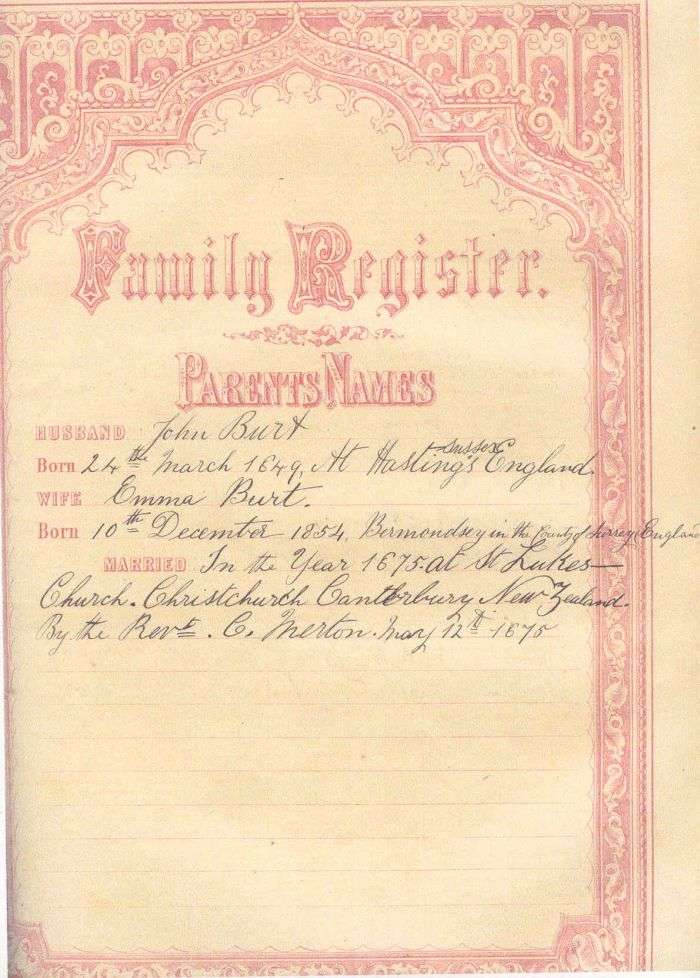 Family Register.
PARENTS NAMES
HUSBAND John Burt
Born 24th March 1849, At Hastings Sussex England.
WIFE Emma Burt.
Born 10th December 1854, Bermondsey in the County of Surrey England
MARRIED In the Year 1875. at St Lukes
Church. Christchurch Canterbury New Zealand.
By the Revd. C. Merton. May 12th 1875